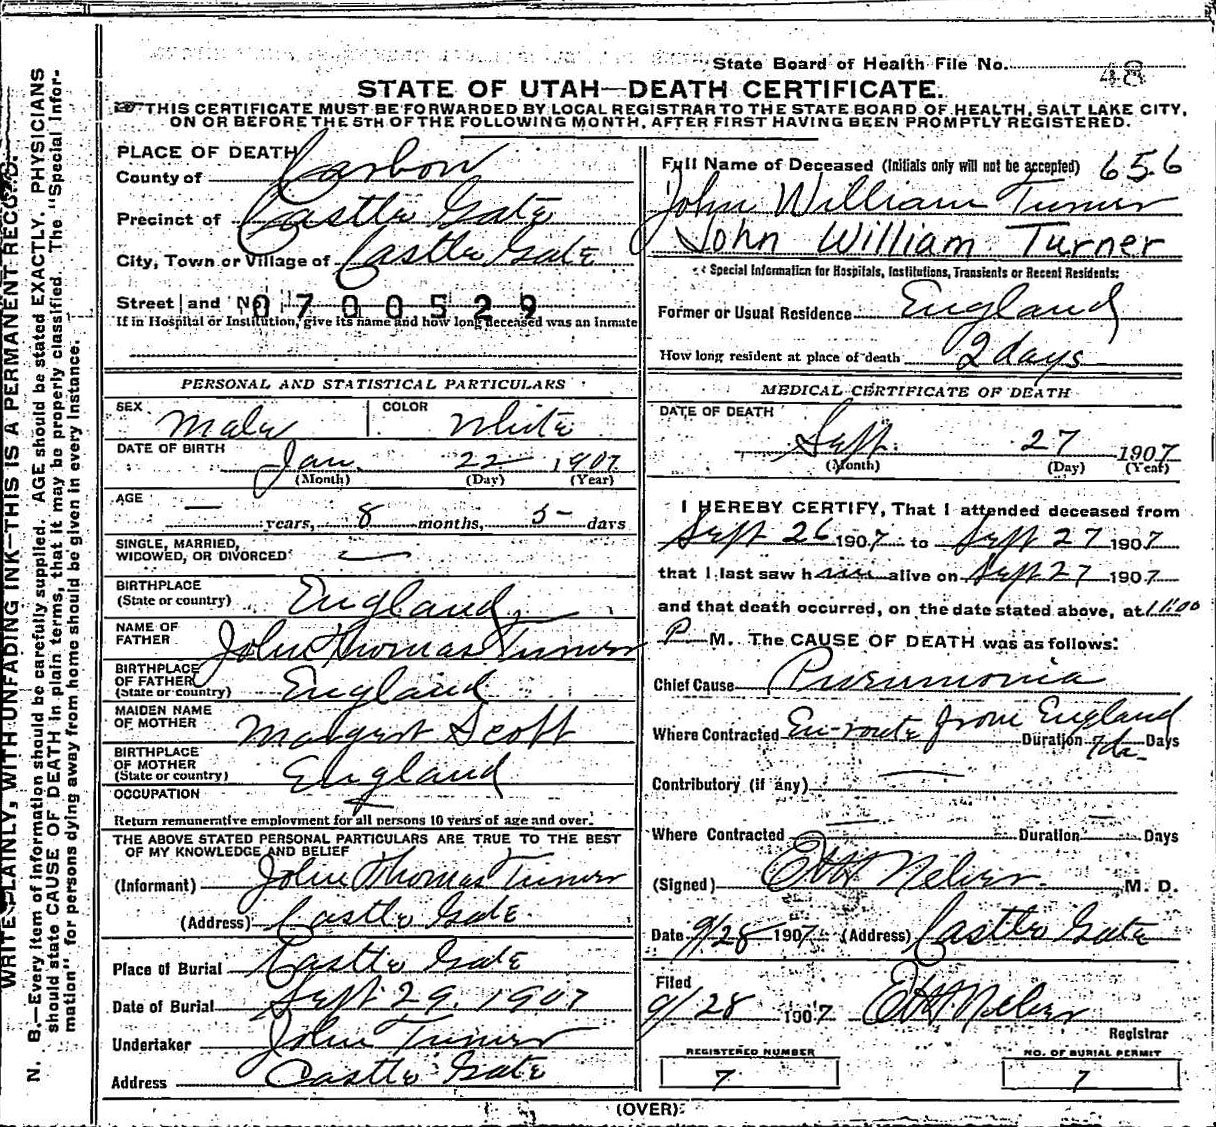 State Board of Health File No. 48
STATE OF UTAH—DEATH CERTIFICATE.
THIS CERTIFICATE MUST BE FORWARDED BY LOCAL REGISTRAR TO THE STATE BOARD OF HEALTH, SALT LAKE CITY,
ON OR BEFORE THE 5TH OF THE FOLLOWING MONTH, AFTER FIRST HAVING BEEN PROMPTLY REGISTERED.
WRITE PLAINLY, WITH UNFADING INK—THIS IS A PERMANENT RECORD.
N. B.—Every item of information should be carefully supplied. AGE should be stated EXACTLY. PHYSICIANS
should state CAUSE OF DEATH in plain terms, that it may be properly classified. The "Special Infor-
mation" for persons dying away from home should be given in every instance.
PLACE OF DEATH
County of Carbon
Precinct of Castle Gate
City, Town or Village of Castle Gate
Street and No. 0700529
If in Hospital or Institution, give its name and how long deceased was an inmate
PERSONAL AND STATISTICAL PARTICULARS
SEX Male COLOR White
DATE OF BIRTH
Jan. 22 1907
(Month) (Day) (Year)
AGE
— years, 8 months, 5 days
SINGLE, MARRIED,
WIDOWED, OR DIVORCED
BIRTHPLACE
(State or country) England
NAME OF
FATHER John Thomas Turner
BIRTHPLACE
OF FATHER
(State or country) England
MAIDEN NAME
OF MOTHER Margret Scott
BIRTHPLACE
OF MOTHER
(State or country) England
OCCUPATION
Return remunerative employment for all persons 10 years of age and over.
THE ABOVE STATED PERSONAL PARTICULARS ARE TRUE TO THE BEST
OF MY KNOWLEDGE AND BELIEF
(Informant) John Thomas Turner
(Address) Castle Gate
Place of Burial Castle Gate
Date of Burial Sept 29. 1907
Undertaker John Turner
Address Castle Gate
Full Name of Deceased (Initials only will not be accepted) 656
John William Turner
John William Turner
Special Information for Hospitals, Institutions, Transients or Recent Residents:
Former or Usual Residence England
How long resident at place of death 2 days
MEDICAL CERTIFICATE OF DEATH
DATE OF DEATH
Sept. 27 1907
(Month) (Day) (Year)
I HEREBY CERTIFY, That I attended deceased from
Sept 26 1907 to Sept 27 1907
that I last saw him alive on Sept 27 1907
and that death occurred, on the date stated above, at 11:00
P M. The CAUSE OF DEATH was as follows:
Chief Cause Pneumonia
Where Contracted En-route from England Duration 7 da. Days
Contributory (if any)
Where Contracted Duration Days
(Signed) M. D.
Date 9/28 1907 (Address) Castle Gate
Filed
9/28 1907
Registrar
REGISTERED NUMBER
7
NO. OF BURIAL PERMIT
7
(OVER)